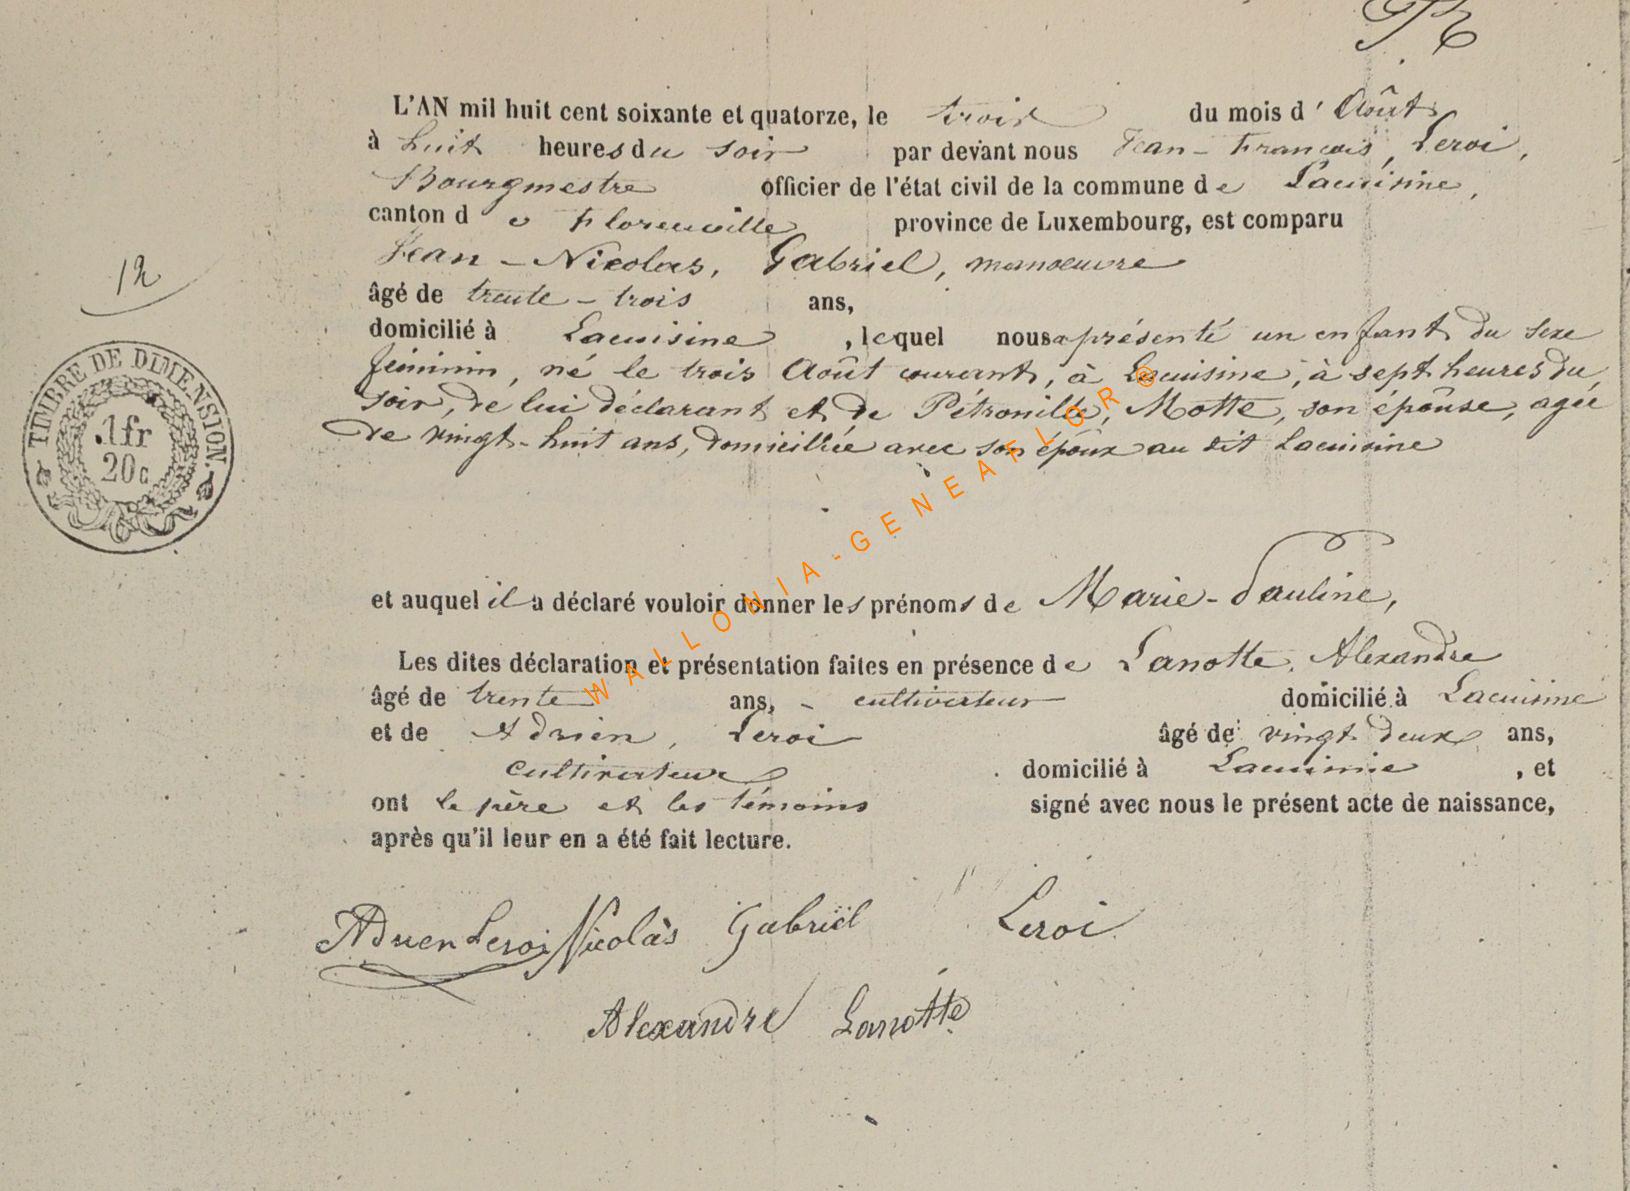 L'AN mil huit cent soixante et quatorze, le trois du mois d' Août
à huit heures du soir par devant nous Jean-François, Leroi,
Bourgmestre officier de l'état civil de la commune de Lacuisine,
canton de Florenville province de Luxembourg, est comparu
Jean-Nicolas, Gabriel, manoeuvre
12
âgé de trente-trois ans,
domicilié à Lacuisine, lequel nous a présenté un enfant du sexe
féminin, né le trois Août courant, à Lacuisine, à sept heures du
soir, de lui déclarant et de Pétronille, Motte, son épouse, agée
de vingt-huit ans, domiciliée avec son époux au dit Lacuisine
TIMBRE DE DIMENSION.
1 fr
20 c
et auquel il a déclaré vouloir donner les prénoms de Marie-Pauline,
Les dites déclaration et présentation faites en présence de Lanotte, Alexandre
âgé de trente ans, - cultivateur domicilié à Lacuisine
et de Adrien, Leroi âgé de vingt deux ans,
cultivateur domicilié à Lacuisine, et
ont le père et les témoins signé avec nous le présent acte de naissance,
après qu'il leur en a été fait lecture.
Adrien Leroi Nicolas Gabriel Leroi
Alexandre Lanotte
WALLONIA-GENEAFLOR®